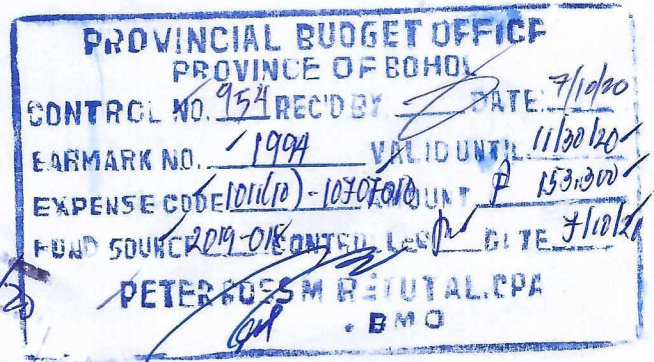 PROVINCIAL BUDGET OFFICE
PROVINCE OF BOHOL
CONTROL NO. 954 REC'D BY DATE 7/10/20
EARMARK NO. 1994 VALID UNTIL 11/30/20
EXPENSE CODE AMOUNT ₱ 153,300
FUND SOURCE 2019-018 CONTROLLED DATE 7/10/20
PETER ROSS M RETUTAL, CPA
BMO